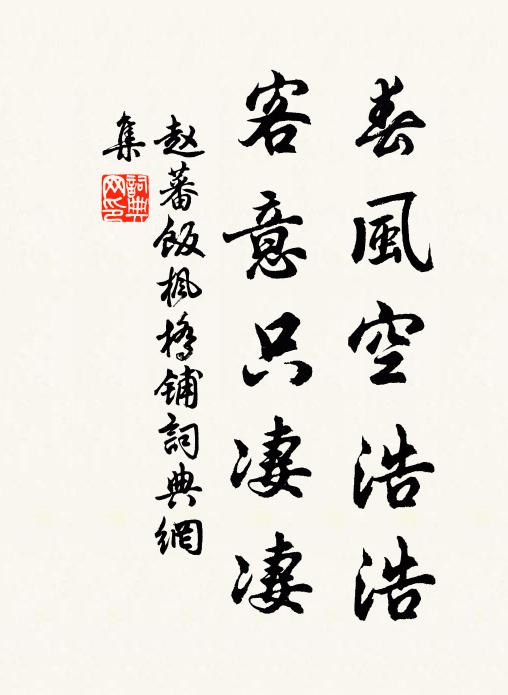 春風空浩浩
客意只凄凄
赵蕃飯楓橋鋪詞典網
集
詞典
网印